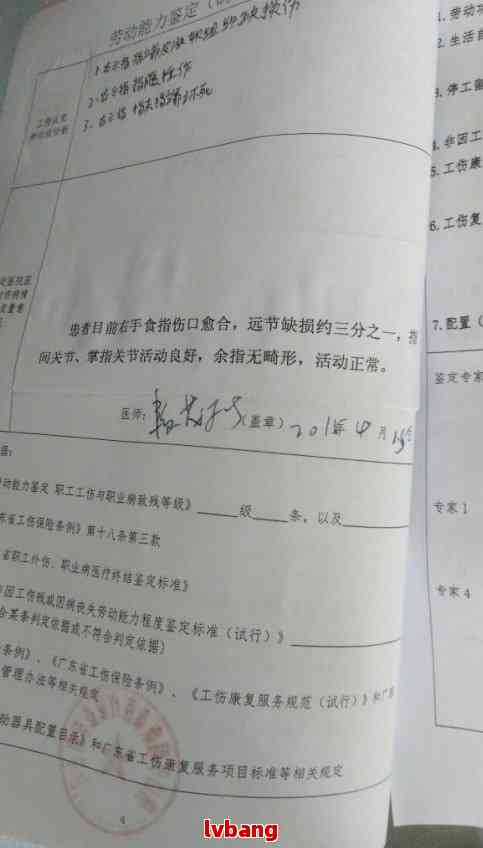 劳动能力鉴定（试
1.右示指指端皮肤软组织挫擦伤
2.右示指
3.右示指 指末端坏死
工伤认定
患者目前右手食指伤口愈合，远节缺损约三分之一，指
间关节、掌指关节活动良好，余指无畸形，活动正常。
医师：
（盖章）201 年4月15日
据：
动能力鉴定 职工工伤与职业病致残等级》____级____条，以及________
东省工伤保险条例》第十八条第三款
省职工外伤、职业病医疗终结鉴定标准》
因工伤残或因病丧失劳动能力程度鉴定标准（试行）》________
合某条判定依据或不符合判定依据）
条例》、《广东省工伤保险条例》、《工伤康复服务规范（试行）》和广东
管理办法等相关规定
助器具配置目录》和广东省工伤康复服务项目标准等相关规定
4
1.劳动功
2.生活自
3.停工留
4.非因工
5.工伤康
6.工伤复
7.配置（
鉴定专家
专家1
专家4
lvbang